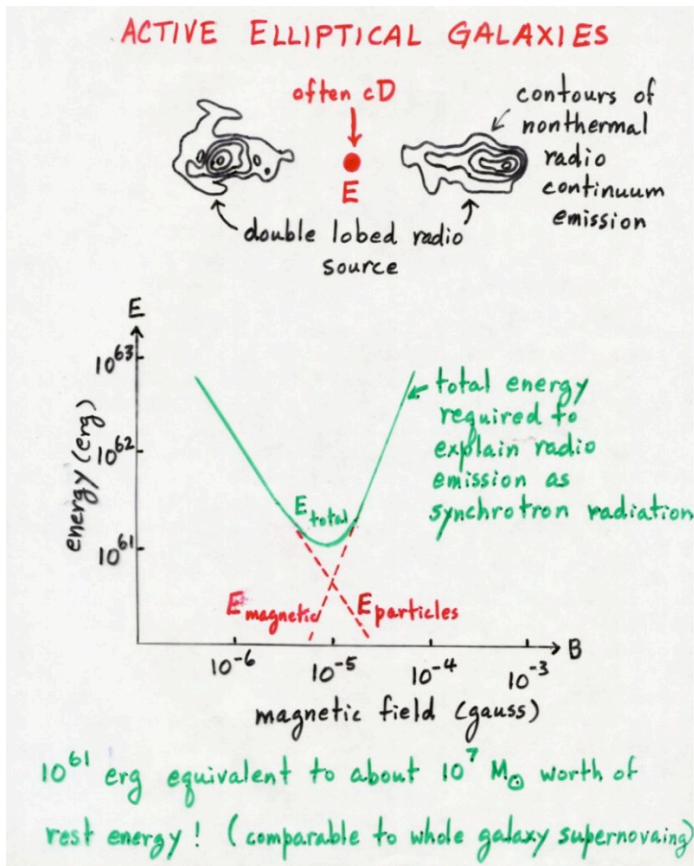 ACTIVE ELLIPTICAL GALAXIES
often cD
E
contours of
nonthermal
radio
continuum
emission
double lobed radio
source
E
energy (erg)
10^63
10^62
10^61
total energy
required to
explain radio
emission as
synchrotron radiation
E total
E magnetic
E particles
B
10^-6
10^-5
10^-4
10^-3
magnetic field (gauss)
10^61 erg equivalent to about 10^7 M⊙ worth of
rest energy! (comparable to whole galaxy supernovaing)